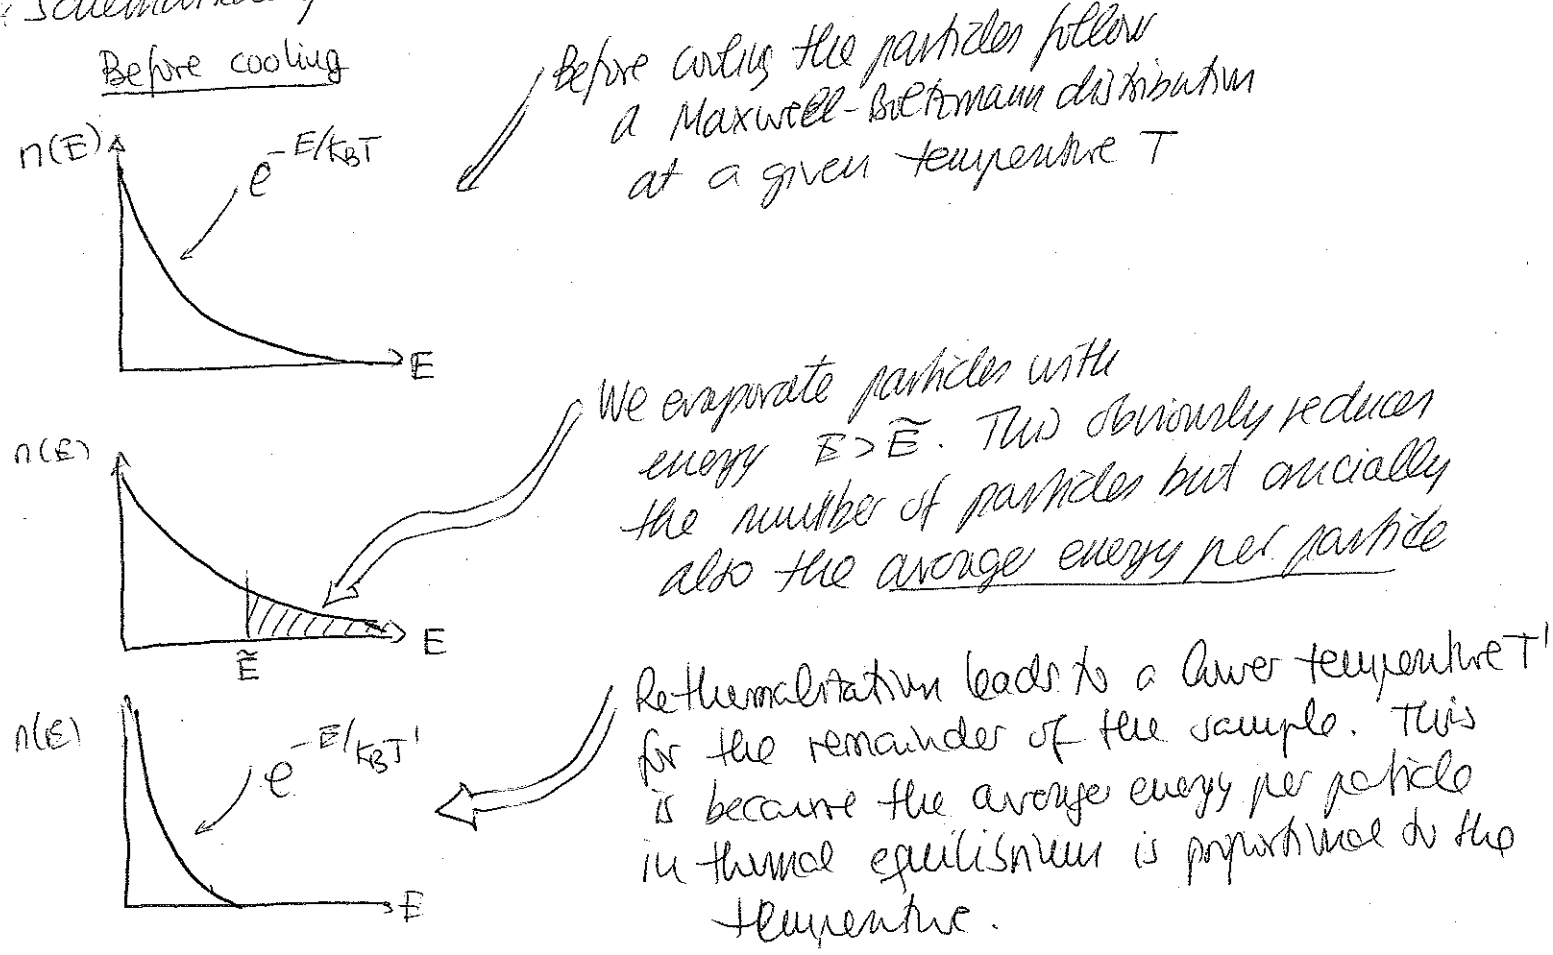 Schematically
Before cooling
Before cooling the particles follow
a Maxwell-Boltzmann distribution
at a given temperature T
n(E)
e^{-E/k_BT}
E
We evaporate particles with
energy E > Ẽ. This obviously reduces
the number of particles but crucially
also the average energy per particle
n(E)
Ẽ
E
Rethermalisation leads to a lower temperature T'
for the remainder of the sample. This
is because the average energy per paticle
in thermal equilibrium is proportional to the
temperature.
n(E)
e^{-E/k_BT'}
E